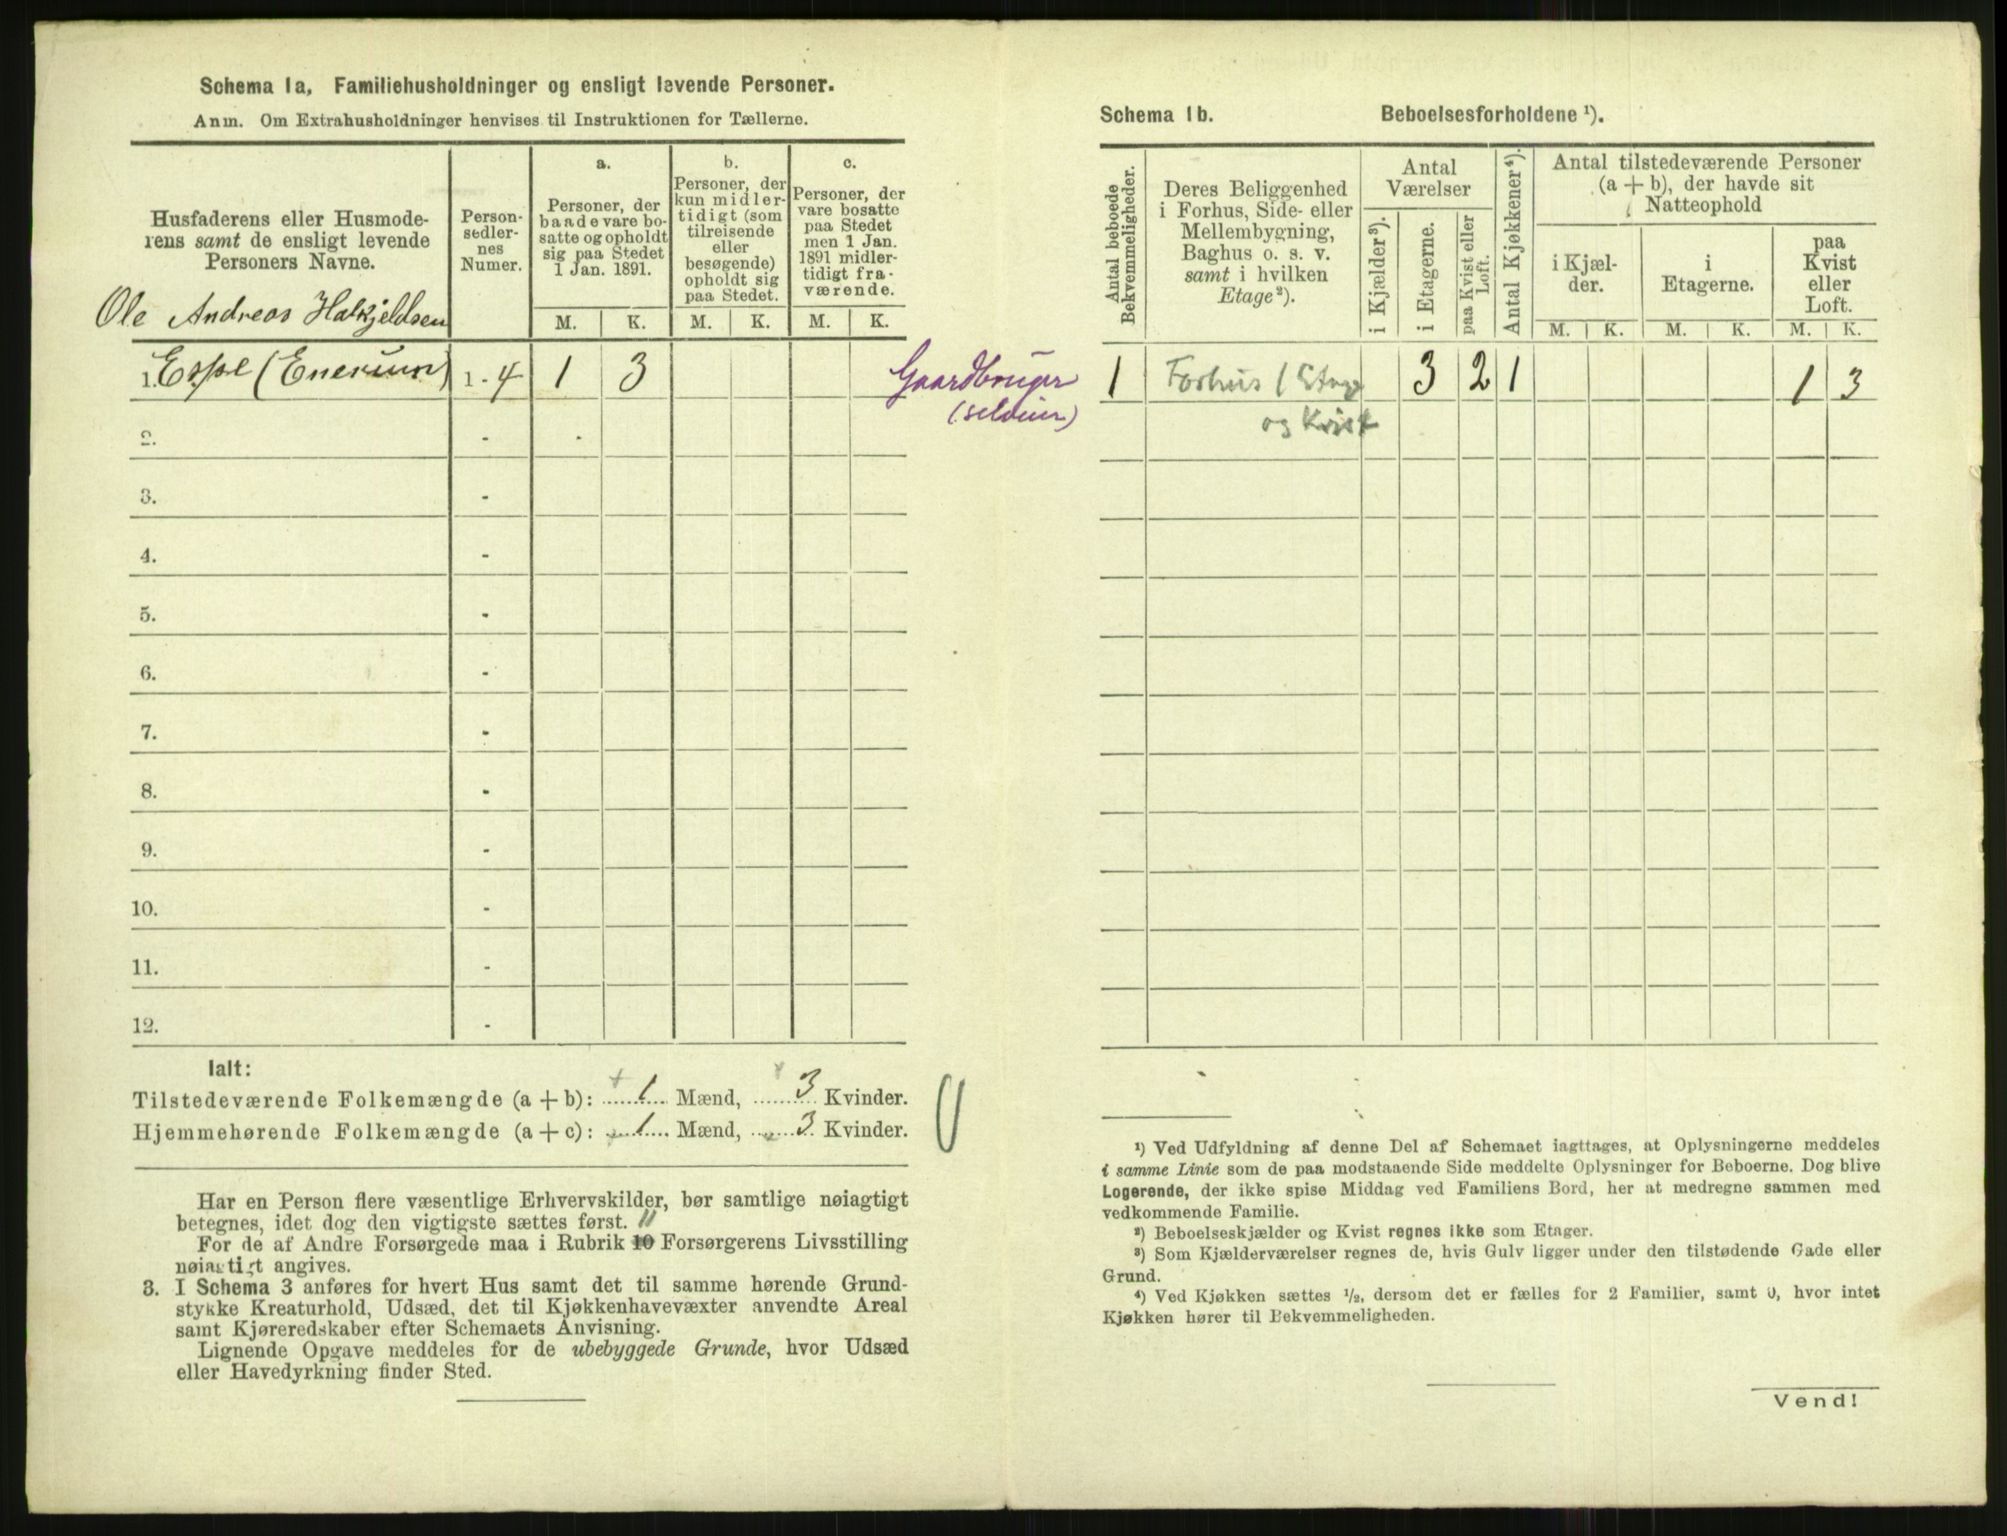 Schema 1a, Familiehusholdninger og ensligt levende Personer.
Anm. Om Extrahusholdninger henvises til Instruktionen for Tællerne.
Husfaderens eller Husmode-
rens samt de ensligt levende
Personers Navne.
Person-
sedler-
nes
Numer.
a.
Personer, der
baade vare bo-
satte og opholdt
sig paa Stedet
1 Jan. 1891.
b.
Personer, der
kun midler-
tidigt (som
tilreisende
eller
besøgende)
opholdt sig
paa Stedet.
c.
Personer, der
vare bosatte
paa Stedet
men 1 Jan.
1891 midler-
tidigt fra-
værende.
M. K. M. K. M. K.
Ole Andreas Halkjeldsen
1. Espe (Enerum) 1 - 4 1 3
Gaardbruger
(selveier)
2. -
3. -
4. -
5. -
6. -
7. -
8. -
9. -
10. -
11. -
12. -
Ialt:
Tilstedeværende Folkemængde (a + b): 1 Mænd, 3 Kvinder.
Hjemmehørende Folkemængde (a + c): 1 Mænd, 3 Kvinder.
Har en Person flere væsentlige Erhvervskilder, bør samtlige nøiagtigt
betegnes, idet dog den vigtigste sættes først. 11
For de af Andre Forsørgede maa i Rubrik 10 Forsørgerens Livsstilling
nøiagtigt angives.
3. I Schema 3 anføres for hvert Hus samt det til samme hørende Grund-
stykke Kreaturhold, Udsæd, det til Kjøkkenhavevæxter anvendte Areal
samt Kjøreredskaber efter Schemaets Anvisning.
Lignende Opgave meddeles for de ubebyggede Grunde, hvor Udsæd
eller Havedyrkning finder Sted.
Schema 1b. Beboelsesforholdene ¹).
Antal beboede
Bekvemmeligheder.
Deres Beliggenhed
i Forhus, Side- eller
Mellembygning,
Baghus o. s. v.
samt i hvilken
Etage²).
Antal
Værelser
i Kjælder³).
i Etagerne.
paa Kvist eller
Loft.
Antal Kjøkkener⁴).
Antal tilstedeværende Personer
(a + b), der havde sit
Natteophold
i Kjæl-
der.
i
Etagerne.
paa
Kvist
eller
Loft.
M. K. M. K. M. K.
1 Forhus 1 Etage 3 2 1 1 3
og Kvist
¹) Ved Udfyldning af denne Del af Schemaet iagttages, at Oplysningerne meddeles
i samme Linie som de paa modstaaende Side meddelte Oplysninger for Beboerne. Dog blive
Logerende, der ikke spise Middag ved Familiens Bord, her at medregne sammen med
vedkommende Familie.
²) Beboelseskjælder og Kvist regnes ikke som Etager.
³) Som Kjælderværelser regnes de, hvis Gulv ligger under den tilstødende Gade eller
Grund.
⁴) Ved Kjøkken sættes ¹/₂, dersom det er fælles for 2 Familier, samt 0, hvor intet
Kjøkken hører til Bekvemmeligheden.
Vend!